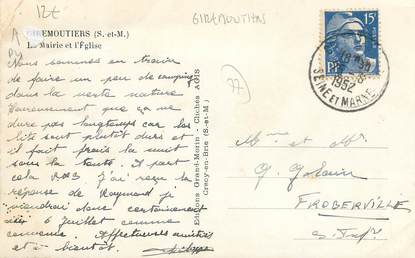 12€
GIREMOUTIERS
GIREMOUTIERS (S.-et-M.)
La Mairie et l'Église
Nous sommes en train
de faire un peu de camping
dans la verte nature
Heureusement que ça ne
dure pas longtemps car les
lits sont plutôt durs et
il fait frais la nuit
sous la tente. A part
cela J'ai reçu la
réponse de Raymond je
viendrai donc certainement
6 Juillet comme
convenu. Affectueuses amitiés
et à bientôt.
Editions Grand-Morin - Clichés AGIS
Crecy-en-Brie (S.-et-M.)
77
15F
1952
SEINE ET MARNE
Mme et Mr
FROBERVILLE
S. Infre